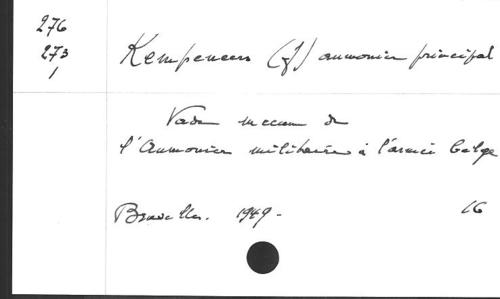 276
273
1
Kempeneers (J) aumonier principal
Vade mecum de
l'Aumonier militaire à l'armée belge
Bruxelles. 1949. 16